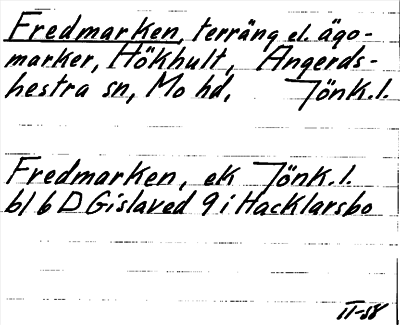 Fredmarken, terräng el. ägo-
marker, Hökhult, Angerds-
hestra sn, Mo hd, Jönk.l.
Fredmarken, ek Jönk.l.
bl 6 D Gislaved 9 i Hacklarsbo
II-58